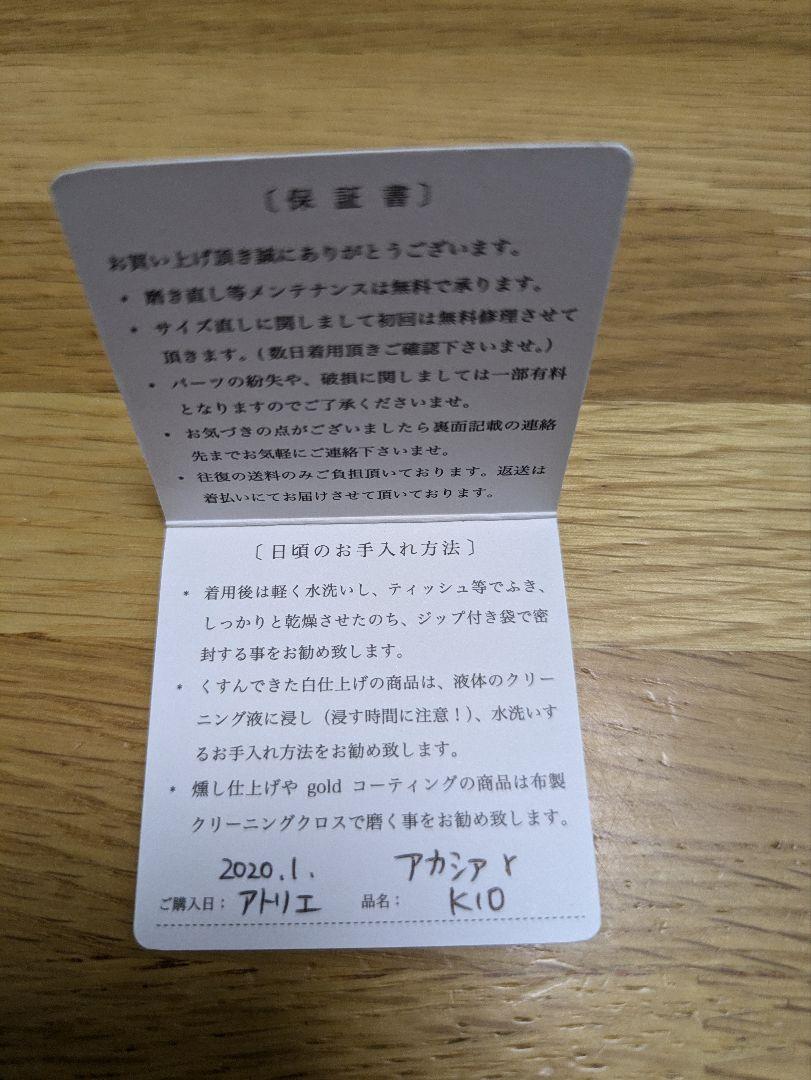 〔保証書〕
お買い上げ頂き誠にありがとうございます。
* 磨き直し等メンテナンスは無料で承ります。
* サイズ直しに関しまして初回は無料修理させて
頂きます。(数日着用頂きご確認下さいませ。)
* パーツの紛失や、破損に関しましては一部有料
となりますのでご了承くださいませ。
* お気づきの点がございましたら裏面記載の連絡
先までお気軽にご連絡下さいませ。
* 往復の送料のみご負担頂いております。返送は
着払いにてお届けさせて頂いております。
〔日頃のお手入れ方法〕
* 着用後は軽く水洗いし、ティッシュ等でふき、
しっかりと乾燥させたのち、ジップ付き袋で密
封する事をお勧め致します。
* くすんできた白仕上げの商品は、液体のクリー
ニング液に浸し（浸す時間に注意！）、水洗いす
るお手入れ方法をお勧め致します。
* 燻し仕上げや gold コーティングの商品は布製
クリーニングクロスで磨く事をお勧め致します。
2020.1. アカシア r
ご購入日： アトリエ 品名： K10